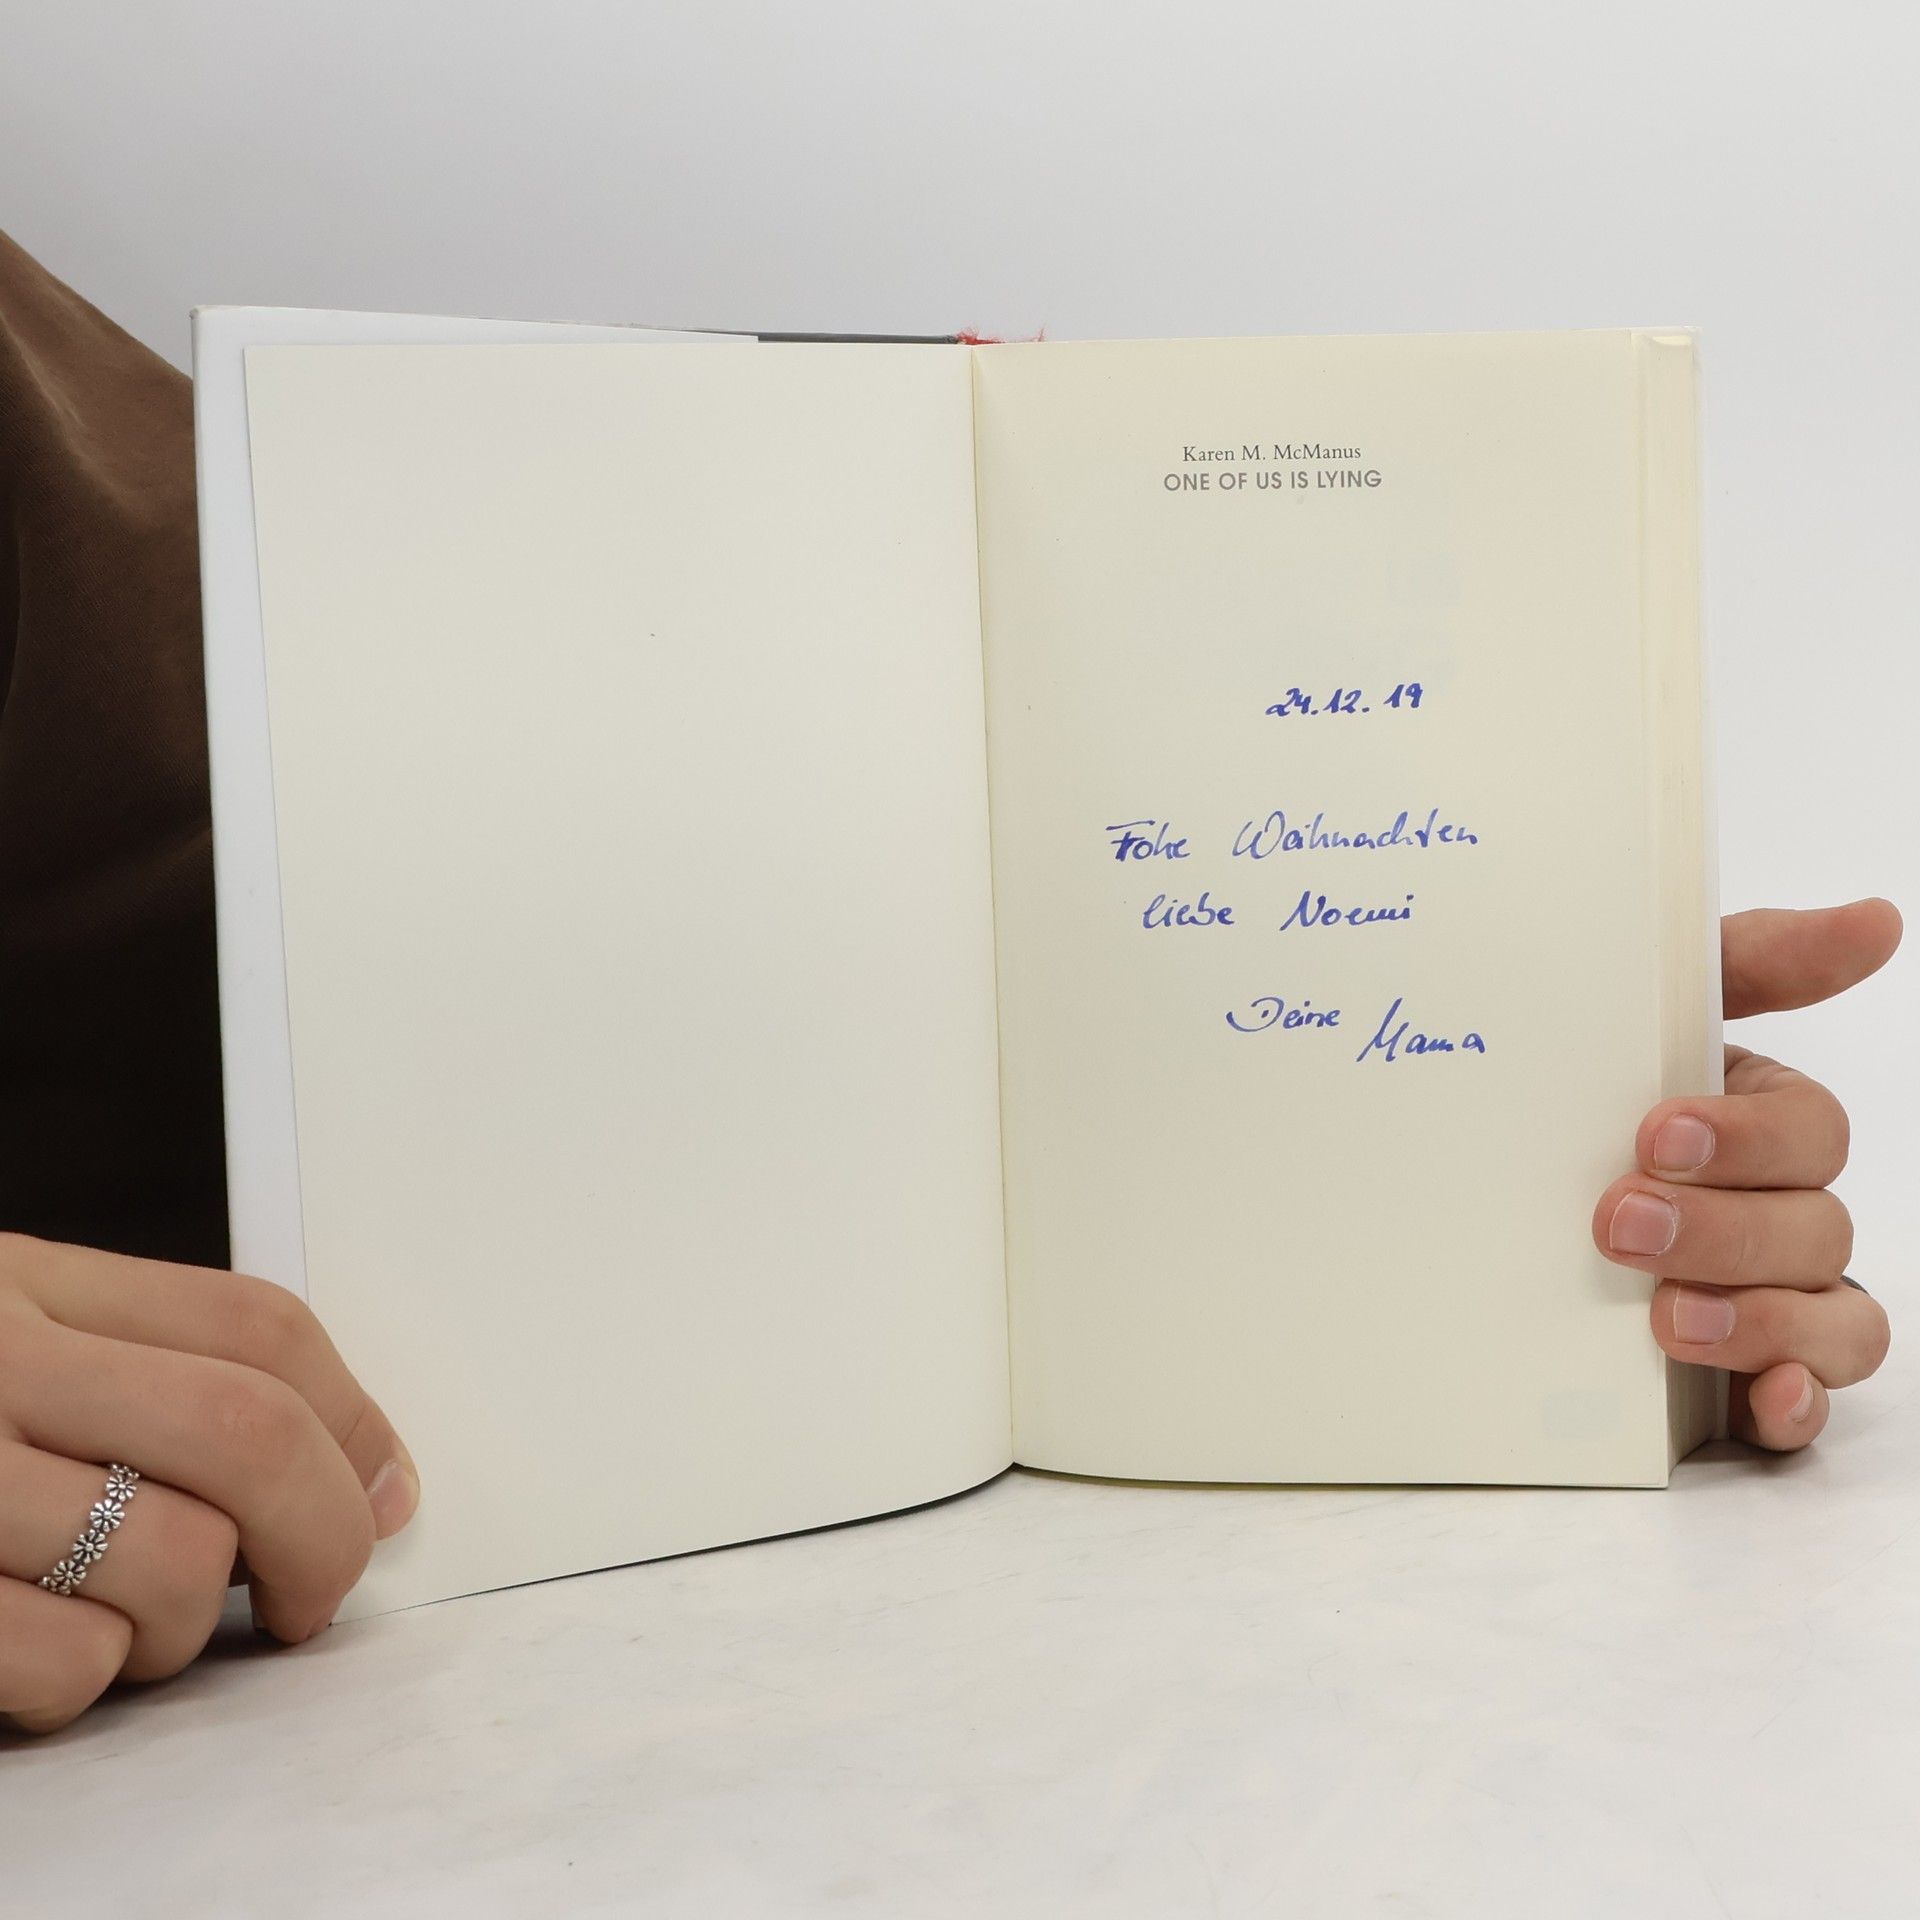 Karen M. McManus
ONE OF US IS LYING
24.12.19
Fohe Weihnachten
liebe Noemi
Deine Mama